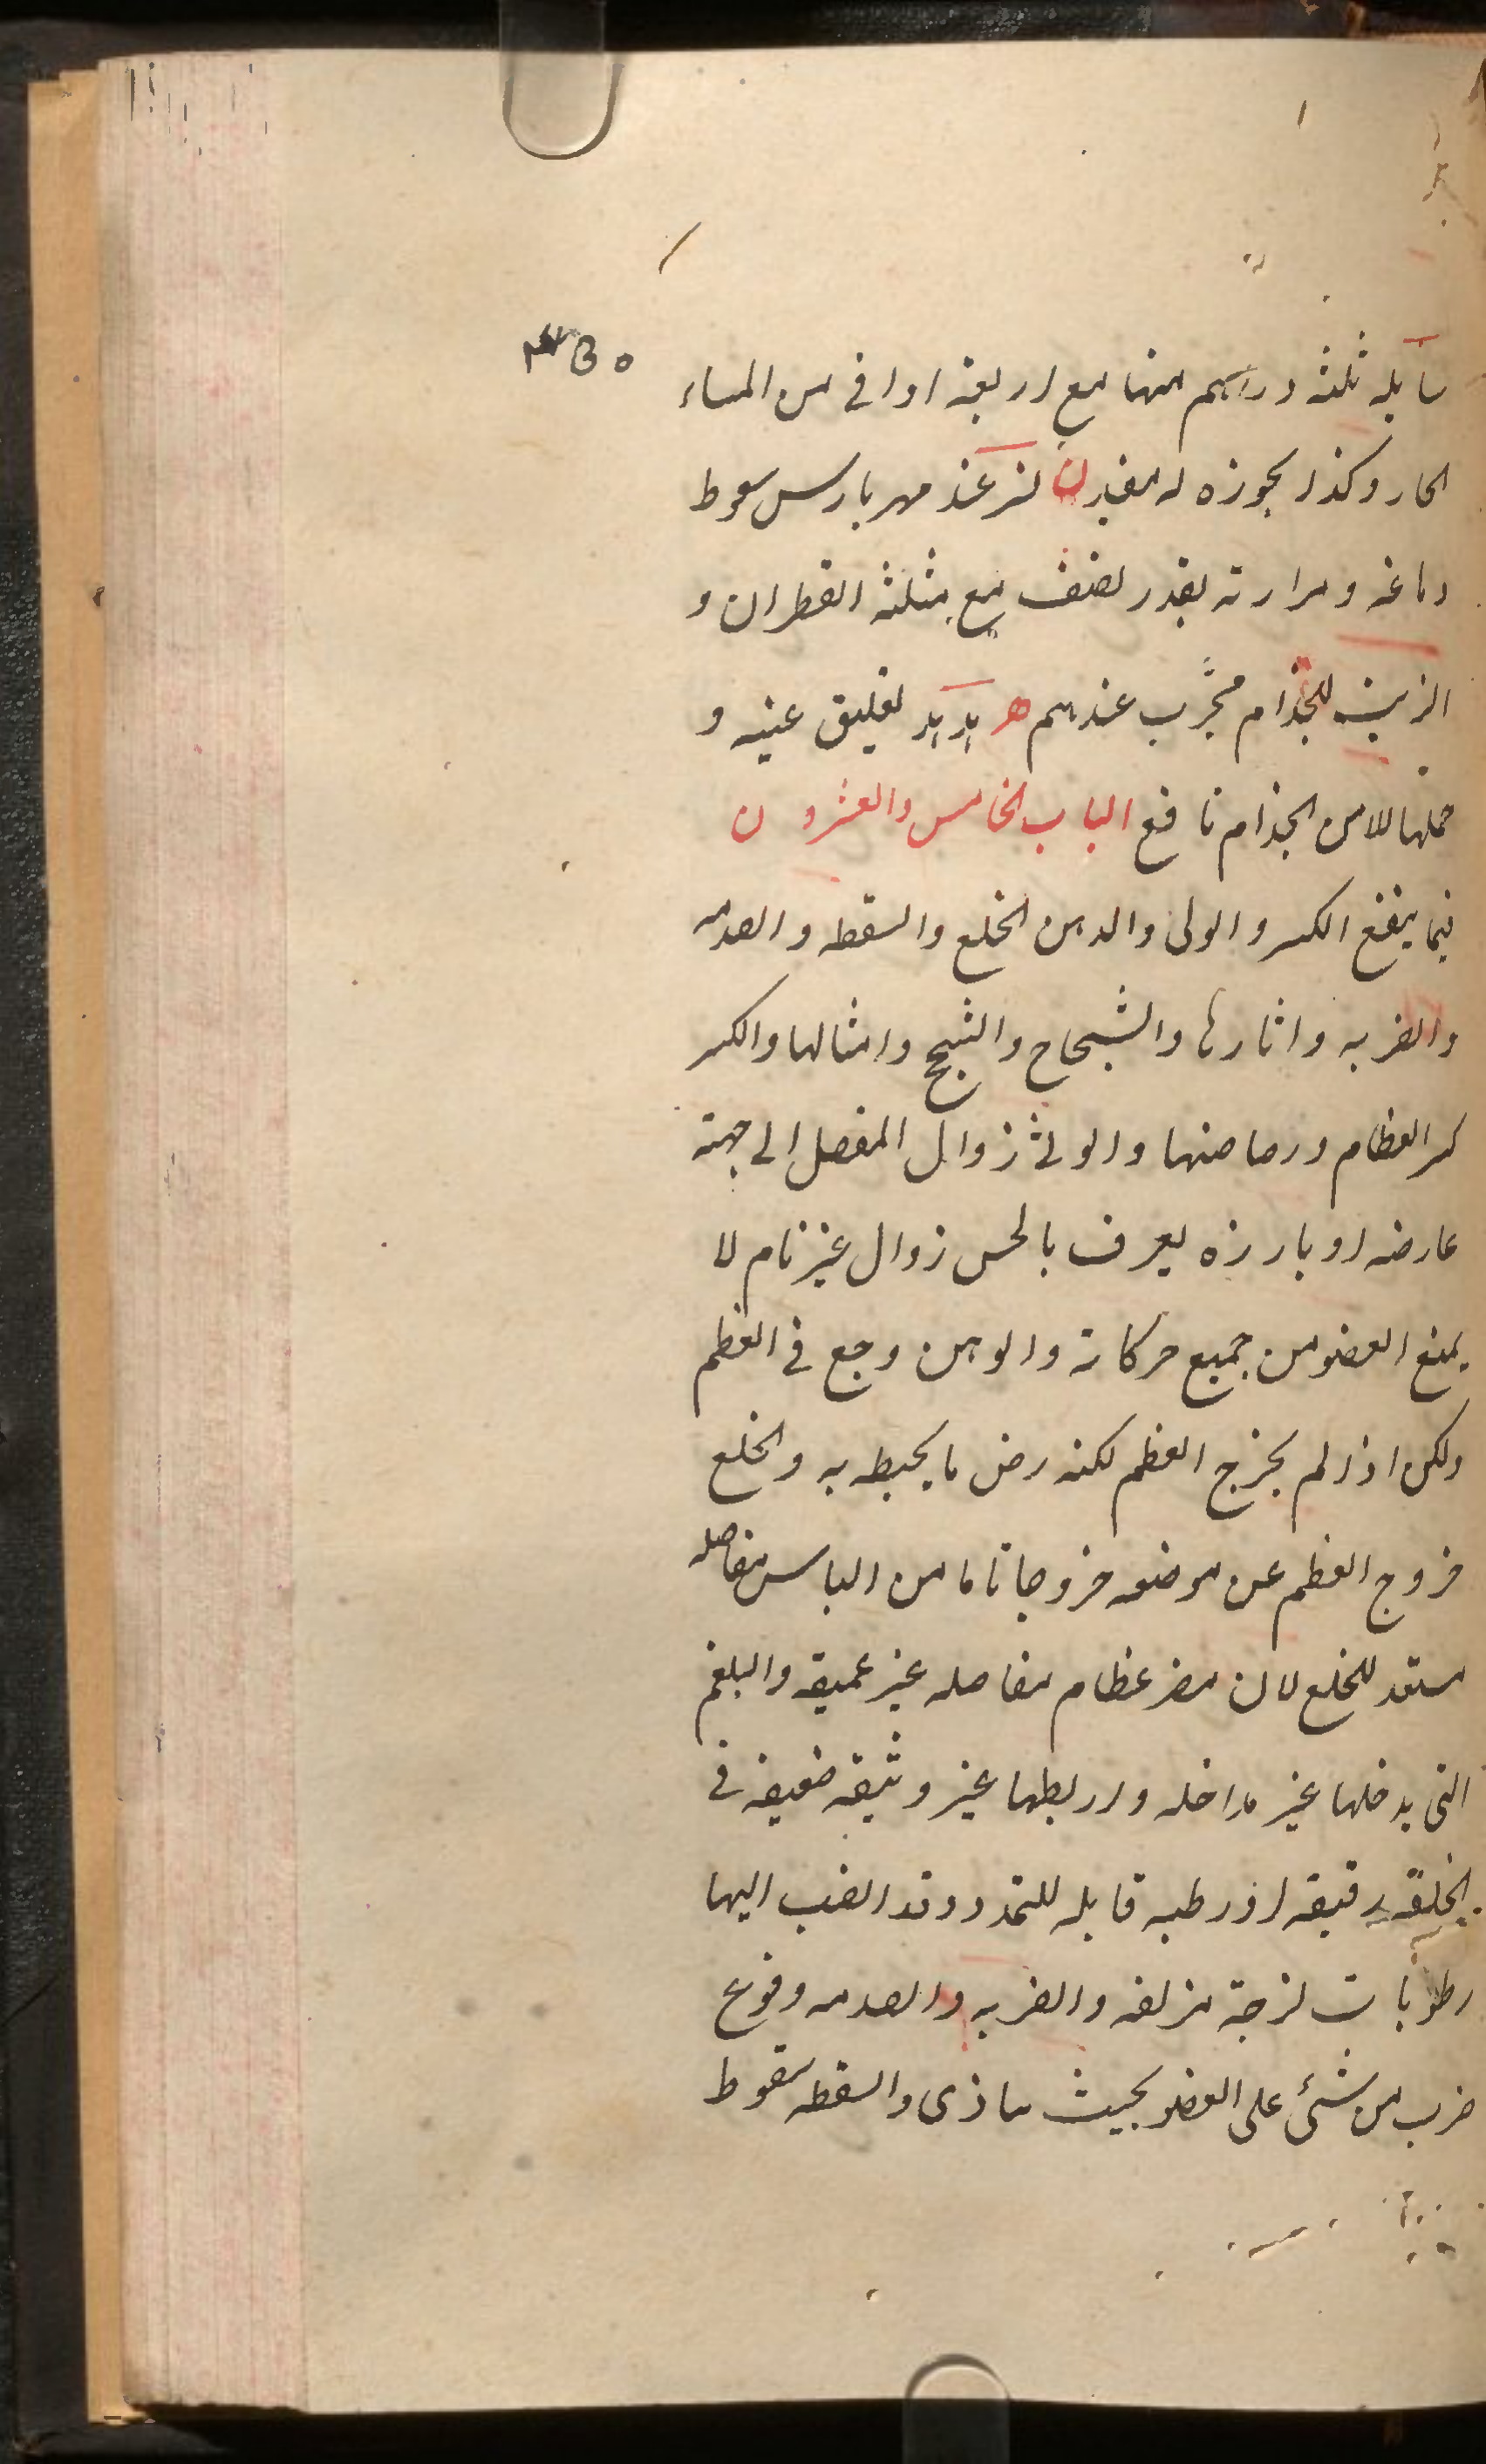 سائله ثلثه دراهم منها مع اربعة اواقى من الماء
الحار وكذا بجوزه له مفيد ن لنر عند مهربارس سعوط
دماغه ومرارته بقدر نصف مع مثلثه القطران و
الزيت للجذام مجرّب عندهم ه هدهد تعليق عينه و
حملها للامن الجذام نافع الباب الخامس والعشرون
فيما ينفع الكسر والوثى والدهن الخلع والسقطه والصدمه
والضربه واثارها والشجاج والشج وامثالها والكسر
كسر العظام ورضاضتها والوثى زوال المفصل الى جهة
عارضه او بارزه يعرف بالحس زوال غير تام لا
يمنع العضو من جميع حركاته والوهن وجع فى العظم
ولكن اذا لم يخرج العظم لكنه رض ما يحيط به والخلع
خروج العظم عن موضعه خروجا تاما من الباس مفاصله
مستعد للخلع لان عظام مفاصله غير عميقه والبلغم
التى يدخلها غير مداخله واربطها غير وثيقه ضعيفه فى
الخلقة رقيقه او رطبه قابله للتمدد وقد انصب اليها
رطوبات لزجة مزلقه والضربه والصدمه وقوع
ضرب من شئ على العضو بحيث ساذى والسقطه سقوط